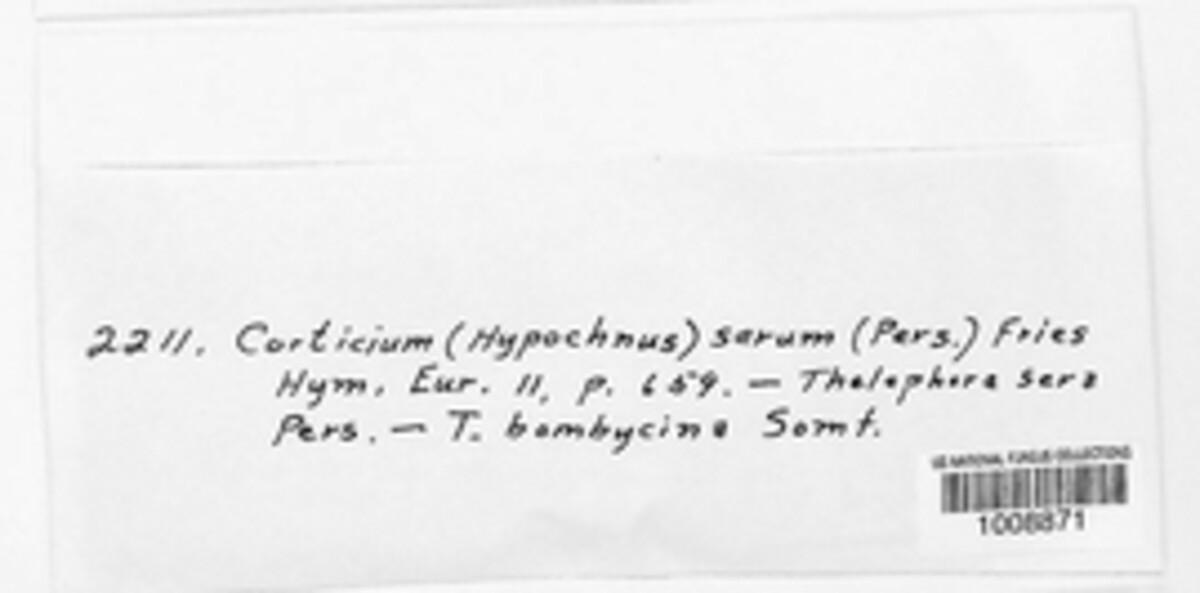 2211. Corticium (Hypochnus) serum (Pers.) Fries
Hym. Eur. 11, p. 659. — Thelephora sera
Pers. — T. bombycina Somf.
US NATIONAL FUNGUS COLLECTIONS
1008871